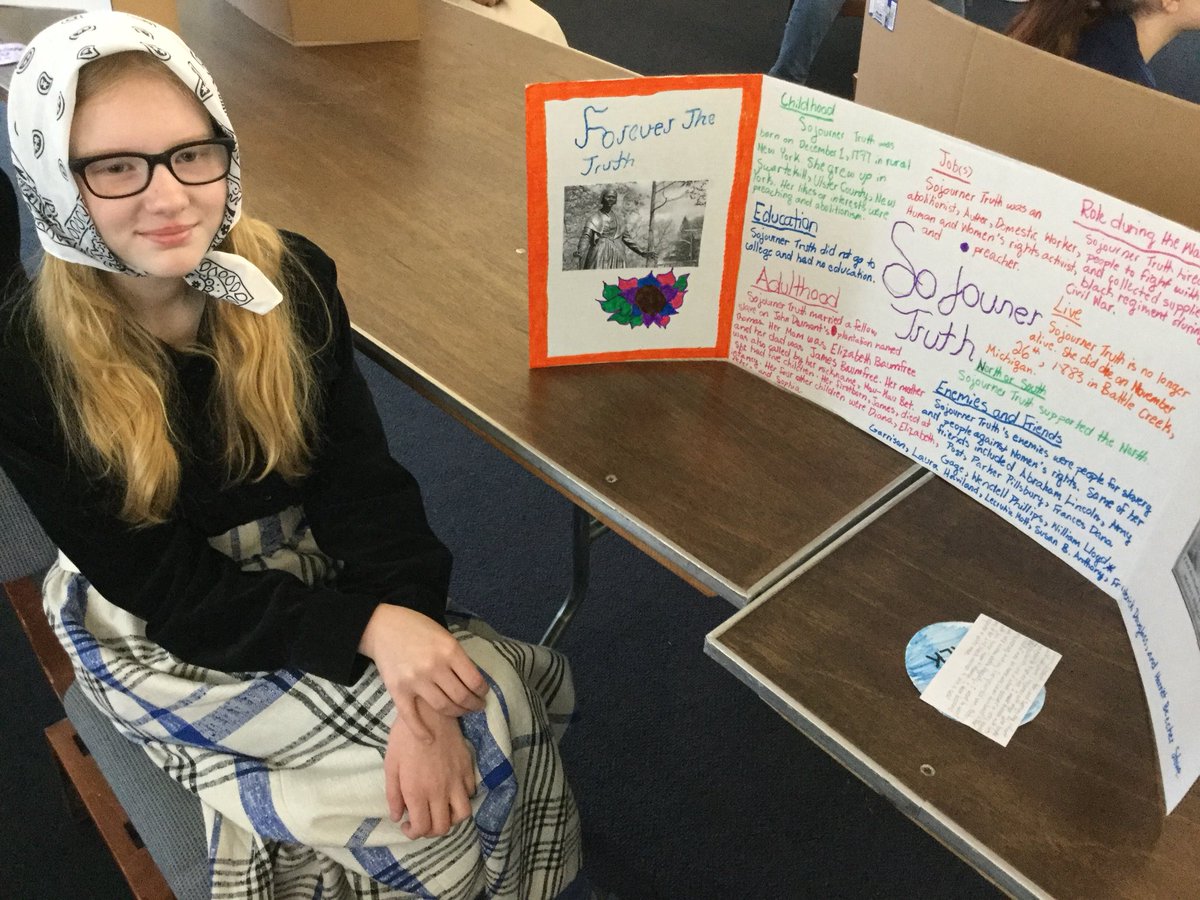 Forever The
Truth
Childhood
Sojourner Truth was
born on December 1, 1797 in rural
New York. She grew up in
Swartekill, Ulster County, New
York. Her likes or interests were
preaching and abolitionism.
Education
Sojourner Truth did not go to
college and had no education.
Adulthood
Sojourner Truth married a fellow
slave on John Dumont's plantation named
Thomas. Her Mom was Elizabeth Baumfree
and her dad was James Baumfree. Her mother
was also called by her nickname, Mau-Mau Bet.
She had five children. Her firstborn, James, died at
infancy. Her four other children were Diana, Elizabeth,
Peter, and Sophia.
Job(s)
Sojourner Truth was an
abolitionist, Author, Domestic Worker,
Human and Women's rights activist,
and preacher.
Sojourner
Truth
Role during the Wa
Sojourner Truth hired
people to fight with
and collected supplies
black regiment during
Civil War.
Live
Sojourner Truth is no longer
alive. She did on November
26th, 1783 in Battle Creek,
Michigan.
North or South
Sojourner Truth supported the North
Enemies and Friends
Sojourner Truth's enemies were people for slavery
and people against Women's rights. Some of her
friends included Abraham Lincoln, Amy
Post, Parker Pillsbury, Frances Dana
Gage, Wendell Phillips, William Lloyd
Garrison, Laura Haviland, Lucretia Mott, Susan B. Anthony, Fredrick Douglass, and Harriet Beecher Stowe.